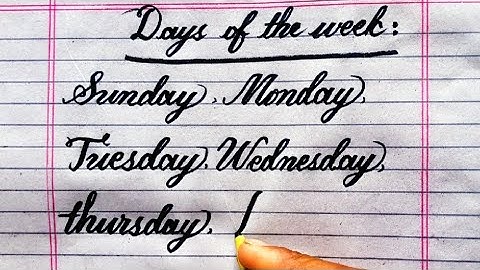 Days of the week:
Sunday, Monday,
Tuesday, Wednesday,
thursday,